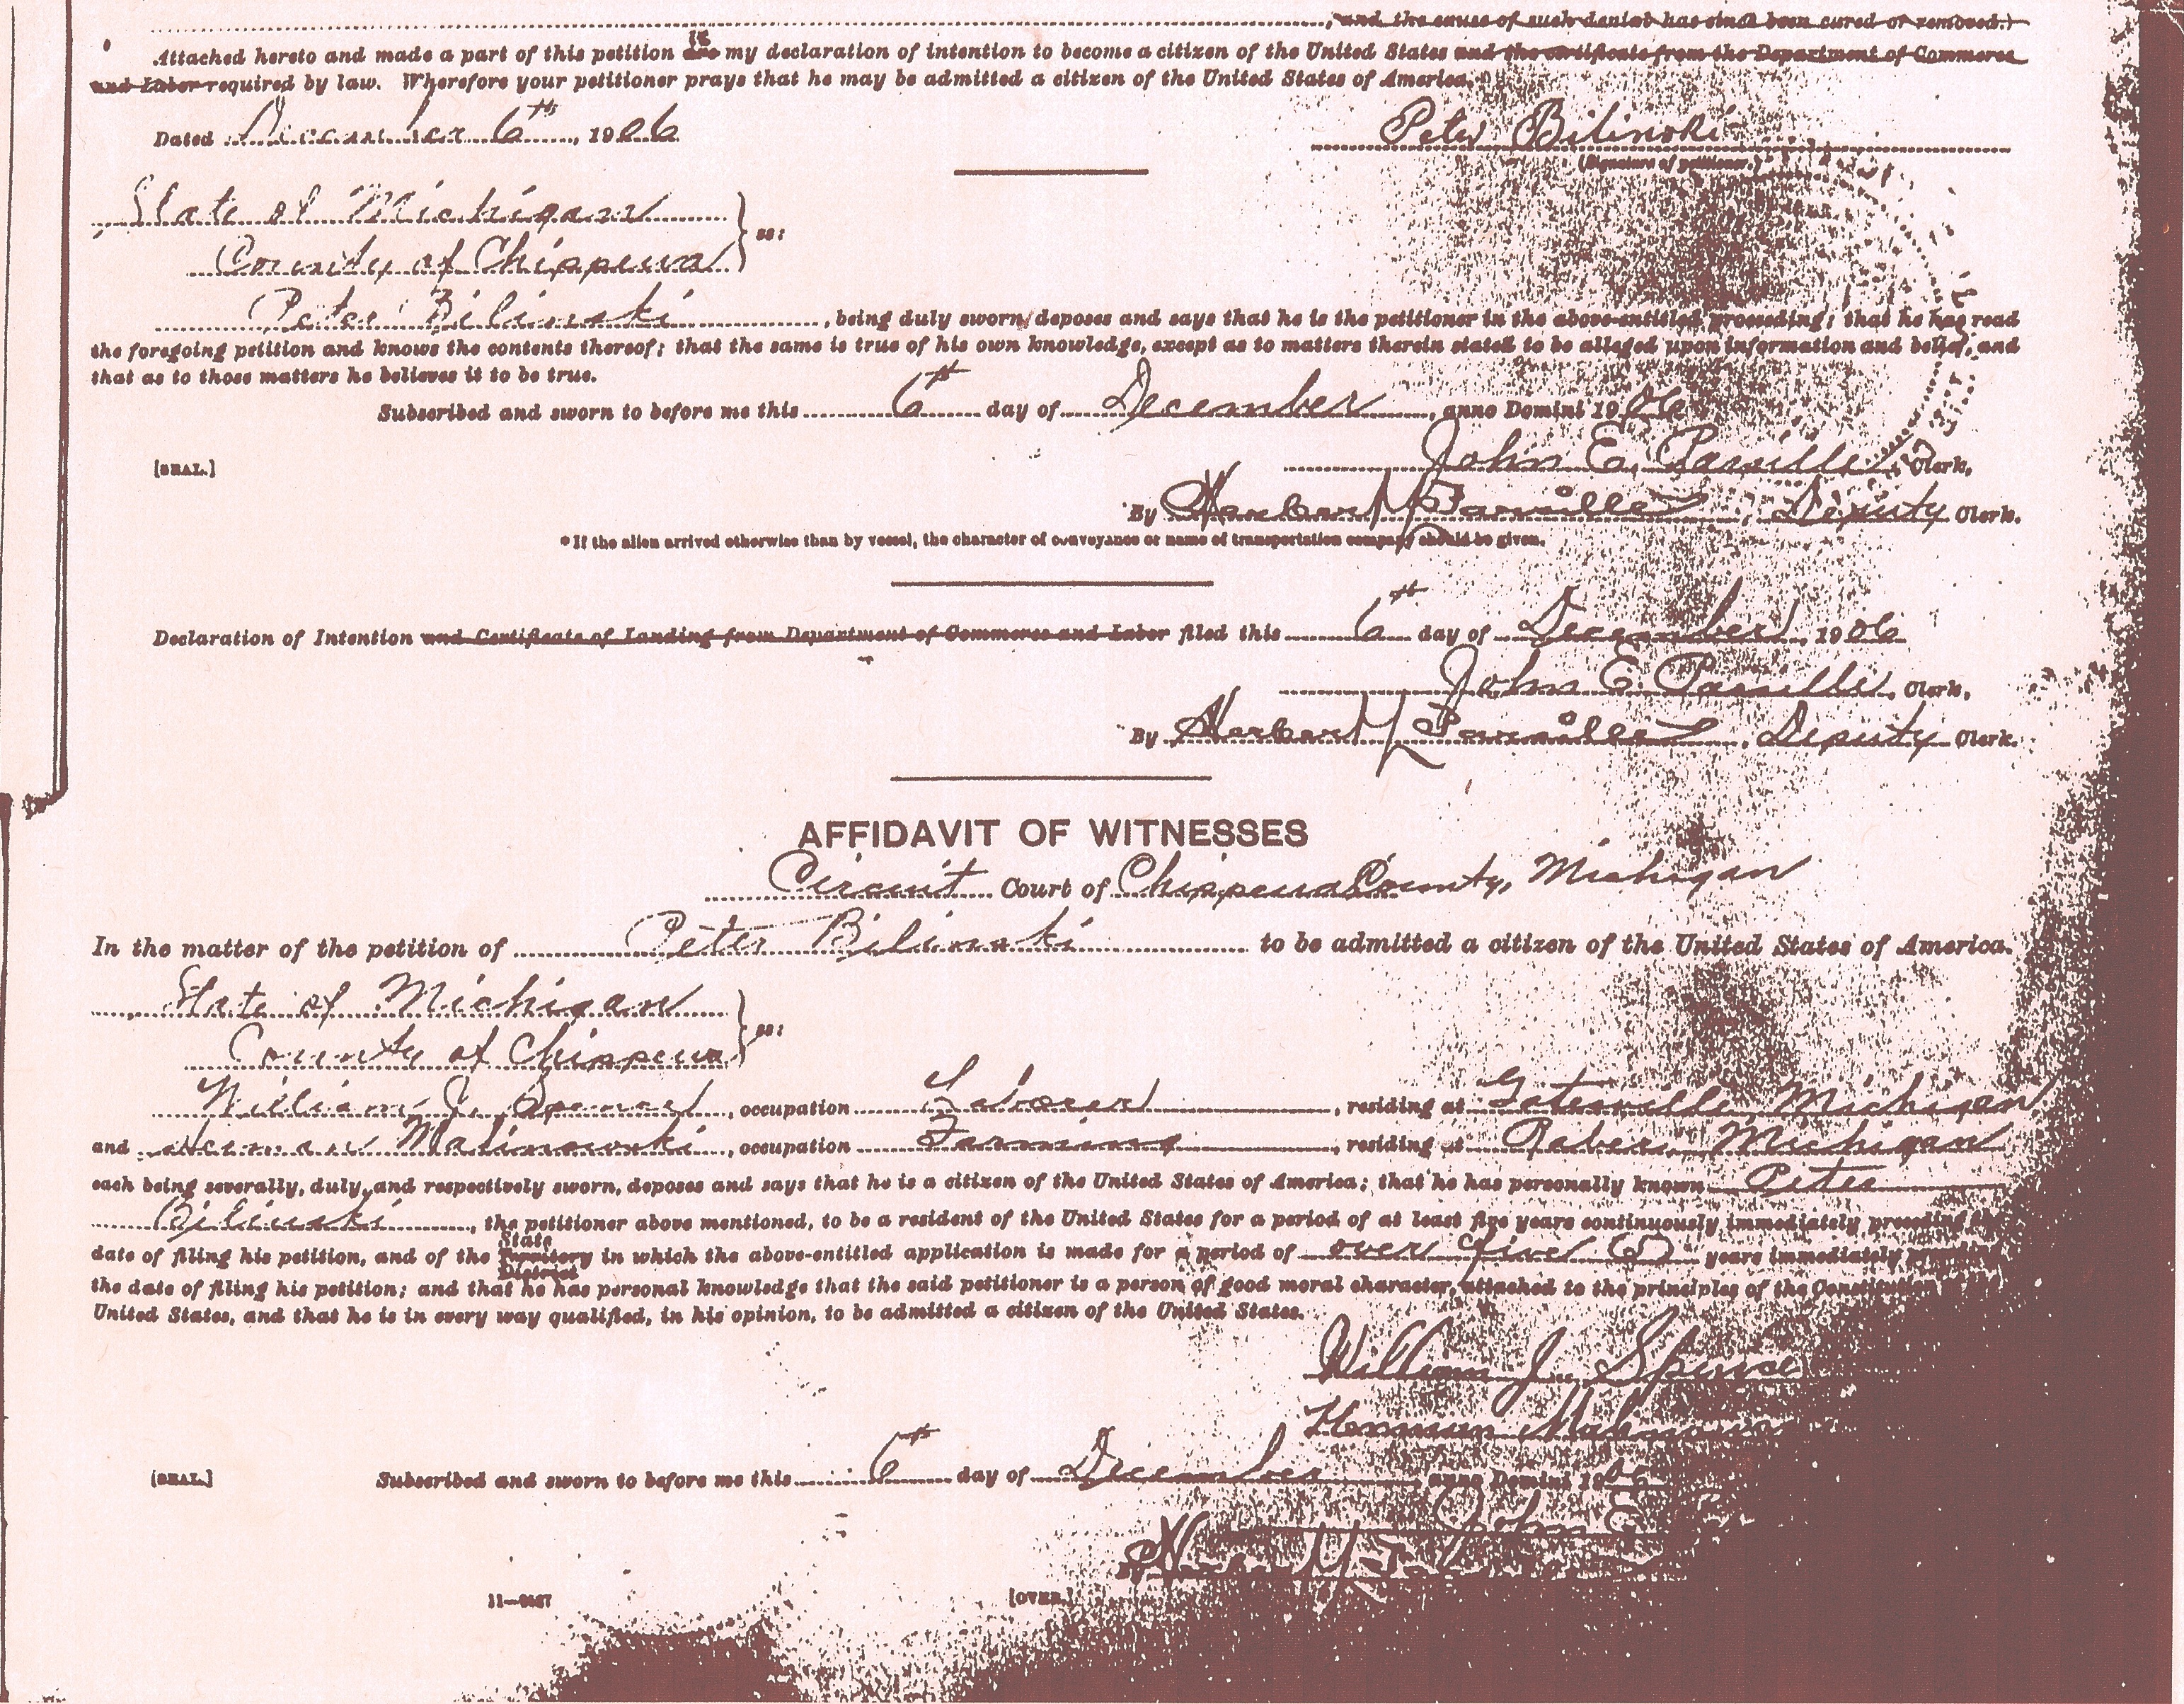 , and the cause of such denial has since been cured or removed.)
is
Attached hereto and made a part of this petition are my declaration of intention to become a citizen of the United States and the certificate from the Department of Commerce
and Labor required by law. Wherefore your petitioner prays that he may be admitted a citizen of the United States of America.
Dated December 6th, 1906 Peter Bilinski
(Signature of petitioner.)
State of Michigan
County of Chippewa } ss:
Peter Bilinski, being duly sworn, deposes and says that he is the petitioner in the above-entitled proceeding; that he has read
the foregoing petition and knows the contents thereof; that the same is true of his own knowledge, except as to matters therein stated to be alleged upon information and belief, and
that as to those matters he believes it to be true.
Subscribed and sworn to before me this 6th day of December, anno Domini 1906
[SEAL.] John E. Parsille, Clerk.
By Herbert Parsille, Deputy Clerk.
*If the alien arrived otherwise than by vessel, the character of conveyance or name of transportation company should be given.
Declaration of Intention and Certificate of Landing from Department of Commerce and Labor filed this 6th day of December, 1906
John E. Parsille, Clerk.
By Herbert Parsille, Deputy Clerk.
AFFIDAVIT OF WITNESSES
Circuit Court of Chippewa County, Michigan
In the matter of the petition of Peter Bilinski to be admitted a citizen of the United States of America.
State of Michigan
County of Chippewa } ss:
William J. Spence, occupation Laborer, residing at Gatesville, Michigan
and Herman Malinowski, occupation Farming, residing at Raber, Michigan
each being severally, duly, and respectively sworn, deposes and says that he is a citizen of the United States of America; that he has personally known Peter
Bilinski, the petitioner above mentioned, to be a resident of the United States for a period of at least five years continuously immediately preceding the
State
date of filing his petition, and of the Territory in which the above-entitled application is made for a period of over five (5) years immediately preceding
District
the date of filing his petition; and that he has personal knowledge that the said petitioner is a person of good moral character, attached to the principles of the Constitution of the
United States, and that he is in every way qualified, in his opinion, to be admitted a citizen of the United States.
William J. Spence
Herman
[SEAL.] Subscribed and sworn to before me this 6th day of December anno Domini 1906
John E.
11—9487 [OVER.]